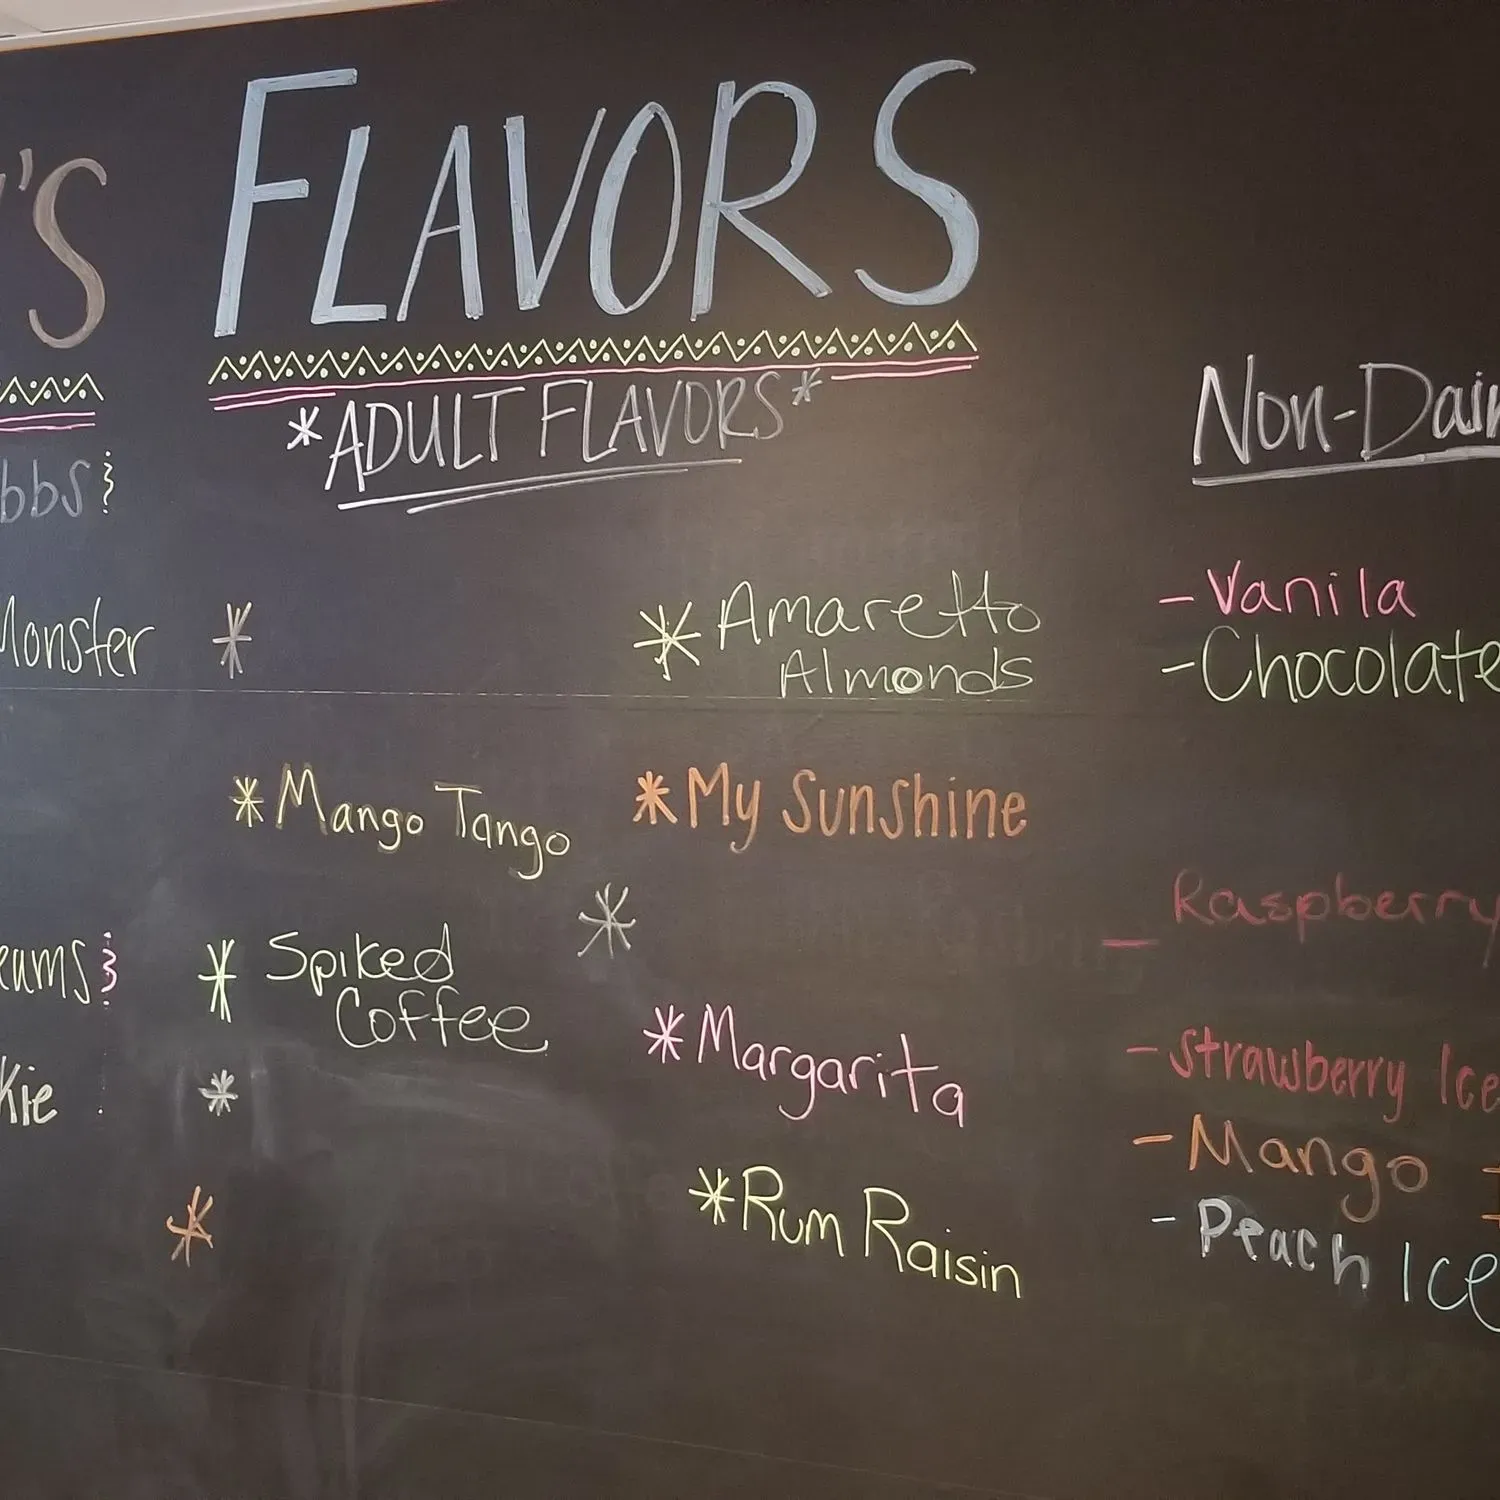 'S FLAVORS
*ADULT FLAVORS*
bbs
Monster
*
* Mango Tango
eams
* Spiked
Coffee
kie
*
*
* Amaretto
Almonds
* My Sunshine
*
* Margarita
* Rum Raisin
Non-Dair
- Vanila
- Chocolate
- Raspberry
- Strawberry Ice
- Mango
- Peach Ice